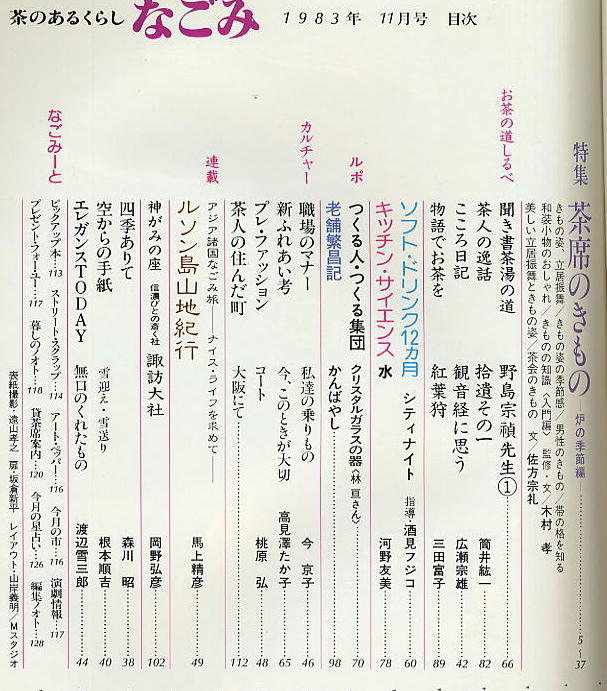 茶のあるくらし なごみ 1983年 11月号 目次
特集 茶席のきもの 炉の季節編
きもの姿、立居振舞/きもの姿の季節感/男性のきもの/帯の格を知る
和装小物のおしゃれ/きものの知識〈入門編〉 監修・文/木村 孝
美しい立居振舞ときもの姿/茶会のきもの 文/佐方宗礼 5〜37
お茶の道しるべ
聞き書茶湯の道 野島宗禎先生① 66
茶人の逸話 拾遺その一 筒井紘一 82
こころ日記 観音経に思う 広瀬宗雄 42
物語でお茶を 紅葉狩 三田富子 89
ソフト・ドリンク12ヵ月 シティナイト 指導・酒見フジコ 60
キッチン・サイエンス 水 河野友美 78
ルポ
つくる人・つくる集団 クリスタルガラスの器〈林 亘さん〉 70
老舗繁昌記 かんばやし 98
カルチャー
職場のマナー 私達の乗りもの 今 京子 46
新ふれあい考 今、このときが大切 高見澤たか子 65
プレ・ファッション コート 桃原 弘 48
茶人の住んだ町 大阪にて 112
連載
アジア諸国なごみ旅——ナイス・ライフを求めて——
ルソン島山地紀行 馬上精彦 49
神がみの座 信濃びとの斎く社 諏訪大社 岡野弘彦 102
四季ありて 森川 昭 38
空からの手紙 雪迎え・雪送り 根本順吉 40
エレガンスTODAY 無口のくれたもの 渡辺雪三郎 44
なごみーと
ピックアップ本…113 ストリート・スクラップ…114 アート・ペッパー…116 今月の市…116 演劇情報…117
プレゼントフォーユー…117 暮しのノオト…118 貸茶席案内…120 今月の星占い…126 編集ノオト…128
表紙撮影・遠山孝之 扉・坂倉新平 レイアウト・山岸義明/Mスタジオ